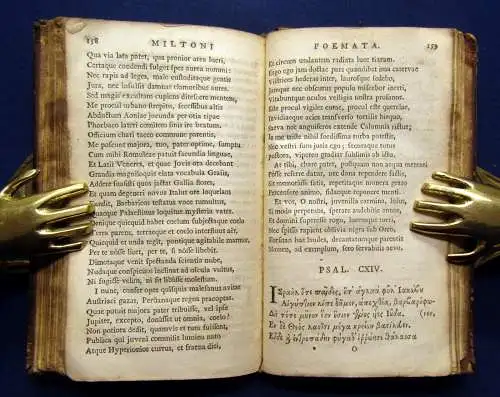 138 MILTONI
Qua via lata patet, qua pronior area lucri,
Certaque condendi fulget spes aurea nummi:
Nec rapis ad leges, male custoditaque gentis
Jura, nec insulsis damnas clamoribus aures.
Sed magis excultam cupiens ditescere mentem,
Me procul urbano strepitu, secessibus altis
Abductum Aoniæ jucunda per otia ripæ
Phœbæo lateri comitem sinis ire beatum.
Officium chari taceo commune parentis,
Me poscunt majora, tuo, pater optime, sumptu
Cum mihi Romuleæ patuit facundia linguæ,
Et Latii Veneres, et quæ Jovis ora decebant
Grandia magniloquis elata vocabula Graiis,
Addere suasisti quos jactat Gallia flores,
Et quam degeneri novus Italus ore loquelam
Fundit, Barbaricos testatus voce tumultus,
Quæque Palæstinus loquitur mysteria vates.
Denique quicquid habet cœlum, subjectaque cœlo
Terra parens, terræque et cœlo interfluus aër,
Quicquid et unda tegit, pontique agitabile marmor,
Per te nôsse licet, per te, si nôsse libebit.
Dimotaque venit spectanda scientia nube,
Nudaque conspicuos inclinat ad oscula vultus,
Ni fugisse velim, ni sit libâsse molestum.
I nunc, confer opes quisquis malesanus avitas
Austriaci gazas, Perüanaque regna præoptas.
Quæ potuit majora pater tribuisse, vel ipse
Jupiter, excepto, donâsset ut omnia, cœlo?
Non potiora dedit, quamvis et tuta fuissent,
Publica qui juveni commisit lumina nato
Atque Hyperionios currus, et fræna diei,
POEMATA. 139
Et circum undantem radiata luce tiaram.
Ergo ego jam doctæ pars quamlibet ima catervæ
Victrices hederas inter, laurosque sedebo,
Jamque nec obscurus populo miscebor inerti,
Vitabuntque oculos vestigia nostra profanos.
Este procul vigiles curæ, procul este querelæ,
Invidiæque acies transverso tortilis hirquo,
Sæva nec anguiferos extende Calumnia rictus;
In me triste nihil fœdissima turba potestis,
Nec vestri sum juris ego; securaque tutus
Pectora, vipereo gradiar sublimis ab ictu.
At tibi, chare pater, postquam non æqua merenti
Posse referre datur, nec dona rependere factis,
Sit memorâsse satis, repetitaque munera grato
Percensere animo, fidæque reponere menti.
Et vos, O nostri, juvenilia carmina, lusus,
Si modo perpetuos sperare audebitis annos,
Et domini superesse rogo, lucemque tueri,
Nec spisso rapient oblivia nigra sub Orco,
Forsitan has laudes, decantatumque parentis
Nomen, ad exemplum, sero servabitis ævo.
PSAL. CXIV.
Ἰσραὴλ ὅτε παῖδες, ὅτ᾽ ἀγλαὰ φῦλ᾽ Ἰακώβου
Αἰγύπτιον λίπε δῆμον, ἀπεχθέα, βαρβαρόφω-
Δὴ τότε μοῦνον ἔην ὅσιον γένος υἷες Ἰούδα. (νον,
Ἐν δὲ Θεὸς λαοῖσι μέγα κρείων βασίλευεν.
Εἶδε καὶ ἐντροπάδην φύγαδ᾽ ἐῤῥώησε θάλασσα
O